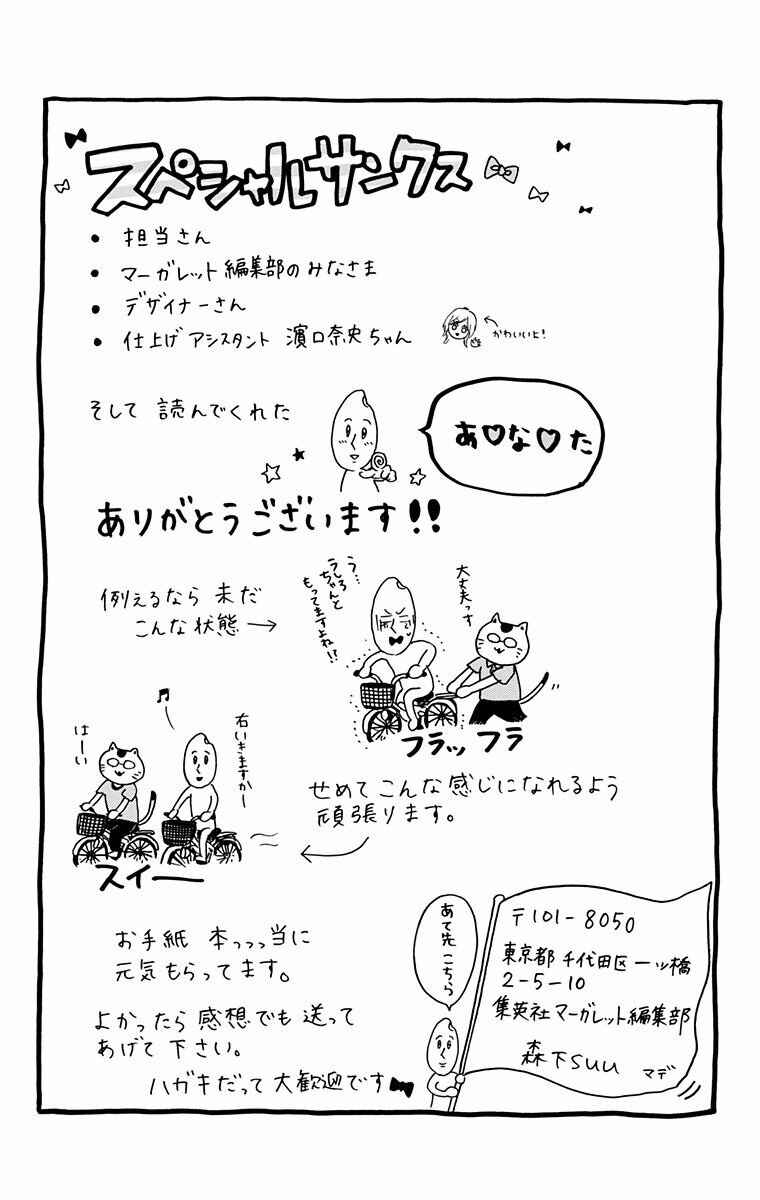 スペシャルサンクス
• 担当さん
• マーガレット編集部のみなさま
• デザイナーさん
• 仕上げアシスタント 濱口奈央ちゃん
かわいいヒト!
そして 読んでくれた
あ♡な♡た
ありがとうございます!!
例えるなら 未だ
こんな状態→
う…
うしろ
ちゃんと
もってますよね!?
大丈夫っす
フラッ フラ
♬
右いきますかー
はーい
スイー
せめて こんな感じになれるよう
頑張ります。
お手紙 本っっっ当に
元気もらってます。
よかったら 感想でも 送って
あげて 下さい。
ハガキだって 大歓迎です
あて先 こちら
〒101-8050
東京都 千代田区 一ツ橋
2-5-10
集英社 マーガレット編集部
森下suu マデ